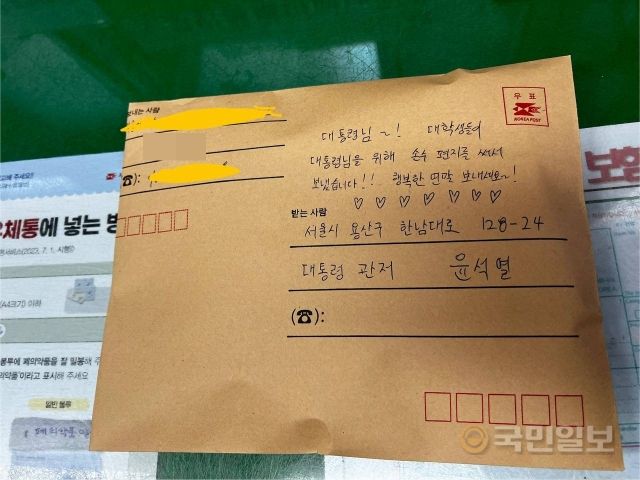 보내는 사람
(☎):
우 표
KOREA POST
대통령님~! 대학생들이
대통령님을 위해 손수 편지를 써서
보냈습니다!!! 행복한 연말 보내세요~!
♡ ♡ ♡ ♡ ♡ ♡ ♡
받는 사람
서울시 용산구 한남대로 128-24
대통령 관저 윤석열
(☎):
해 주세요!
체통에 넣는 방
서비스(2023. 7. 1. 시행)
(A4크기) 이하
봉투에 폐의약품을 잘 밀봉해 주
의약품'이라고 표시해 주세요
일반 봉투
폐의약품
보험
국민일보